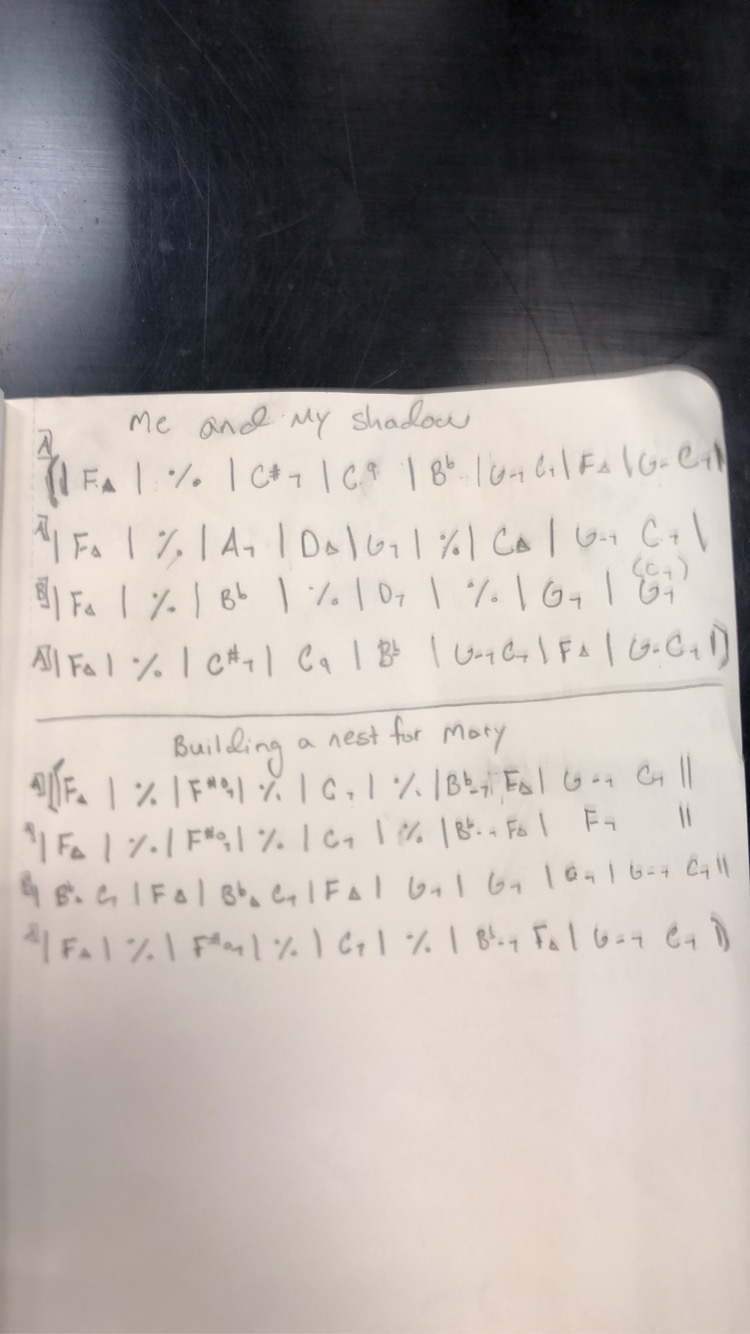 Me and My shadow
A
|| F△ | % | C#7 | C9 | Bb | G-7 C7 | F△ | G- C7 |
A | F△ | % | A7 | D△ | G7 | % | C△ | G-7 C7 |
(C7)
B | F△ | % | Bb | % | D7 | % | G7 | G7
A | F△ | % | C#7 | C9 | Bb | G-7 C7 | F△ | G- C7 ||
Building a nest for Mary
A || F△ | % | F#o7 | % | C7 | % | Bb-7 F△ | G-7 C7 ||
A | F△ | % | F#o7 | % | C7 | % | Bb-7 F△ | F7 ||
B Bb△ C7 | F△ | Bb△ C7 | F△ | G7 | G7 | G7 | G-7 C7 ||
A | F△ | % | F#o7 | % | C7 | % | Bb-7 F△ | G-7 C7 ||